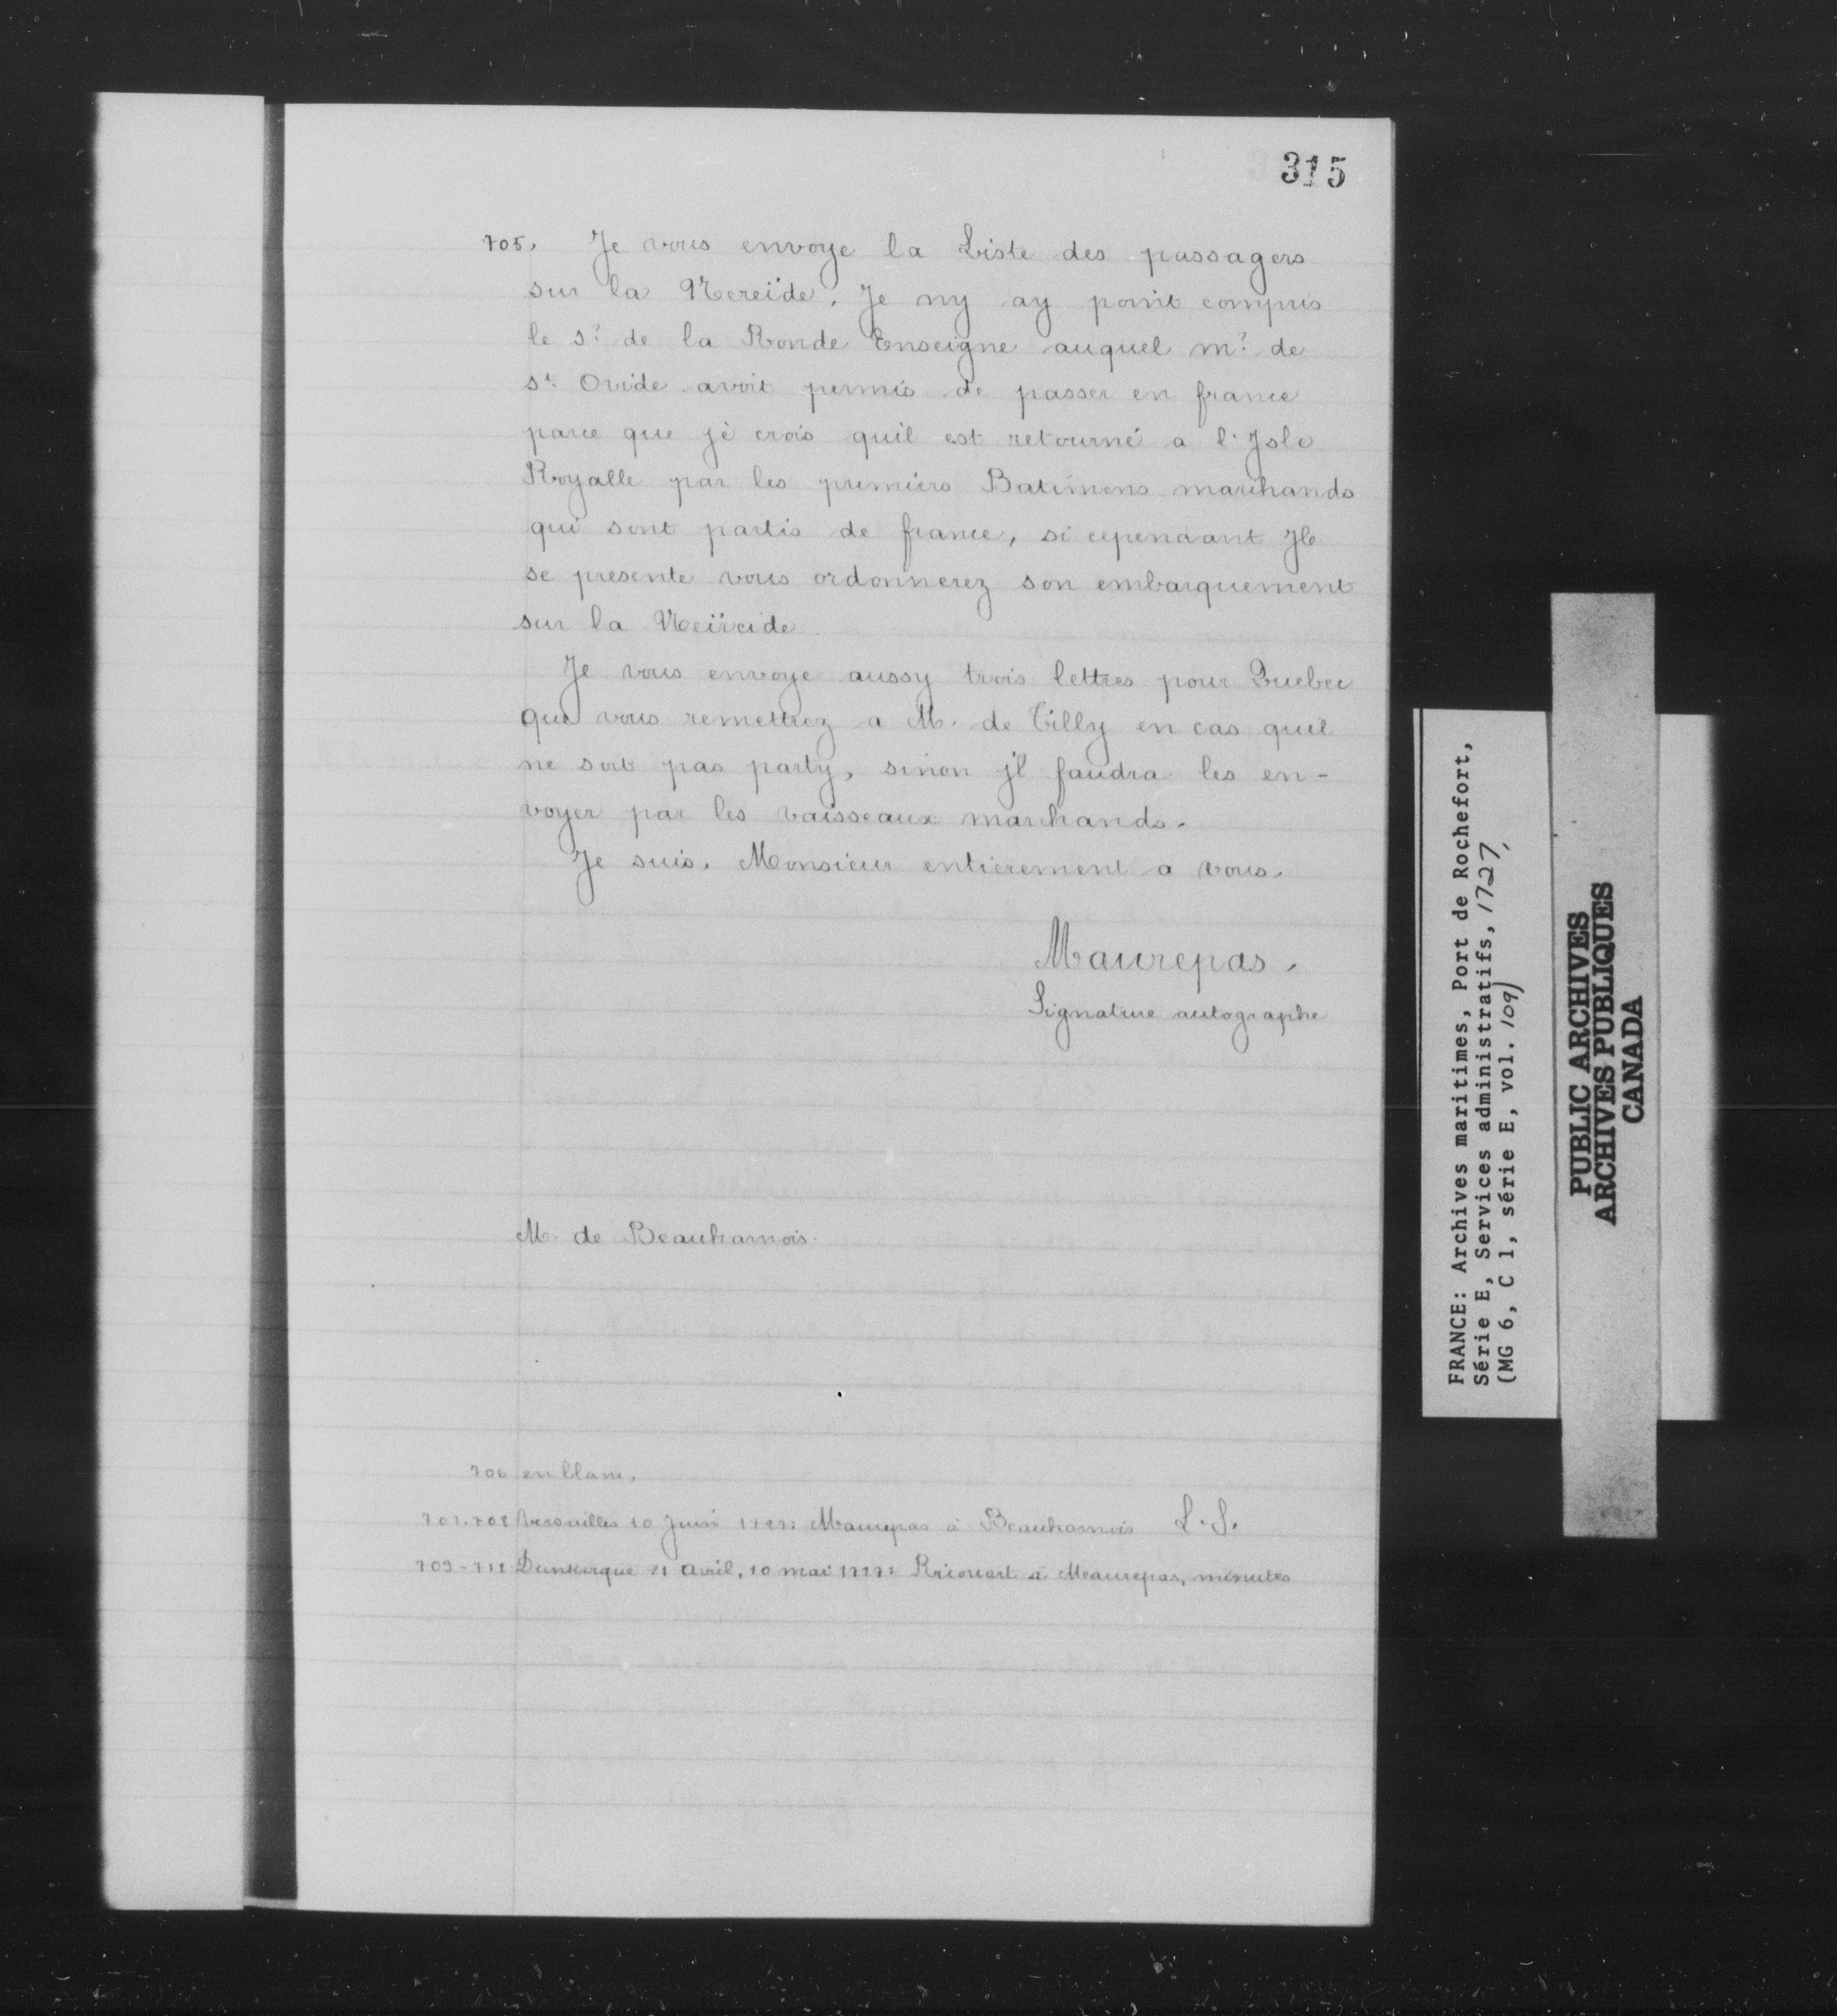 315
705. Je vous envoye la Liste des passagers
sur la Nereïde. Je ny ay point compris
le Sr de la Ronde Enseigne auquel mr de
St Ovide avoit permis de passer en france
parce que jè crois quil est retourné a l'Isle
Royalle par les premiers Batimens marchands
qui sont partis de france, si cependant Il
se presente vous ordonnerez son embarquement
sur la
Je vous envoye aussy trois lettres pour Quebec
que vous remettrez a M. de Tilly en cas quil
ne soit pas party, sinon jl faudra les en-
voyer par les vaisseaux marchands.
Je suis. Monsieur entierement a vous.
Maurepas.
Signature autographe
M. de Beauharnois.
706 en blanc,
707-708 Versailles 10 Juin 1727: Maurepas à Beauharnois L.S.
709-712 Dunkerque 21 Avril, 10 mai 1727: Ricouart à Maurepas, minutes
FRANCE: Archives maritimes, Port de Rochefort,
Série E, Services administratifs, 1727,
(MG 6, C 1, série E, vol. 109)
PUBLIC ARCHIVES
ARCHIVES PUBLIQUES
CANADA